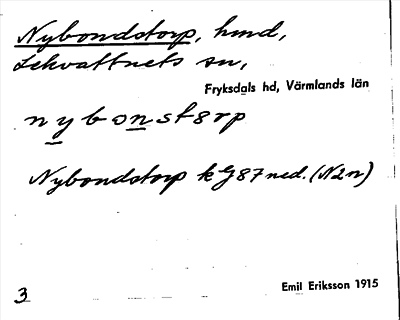 Nybondstorp, hmd,
Lekvattnets sn,
Fryksdals hd, Värmlands län
nybonst8rp
Nybondstorp kG87 ned. (N2n)
3
Emil Eriksson 1915